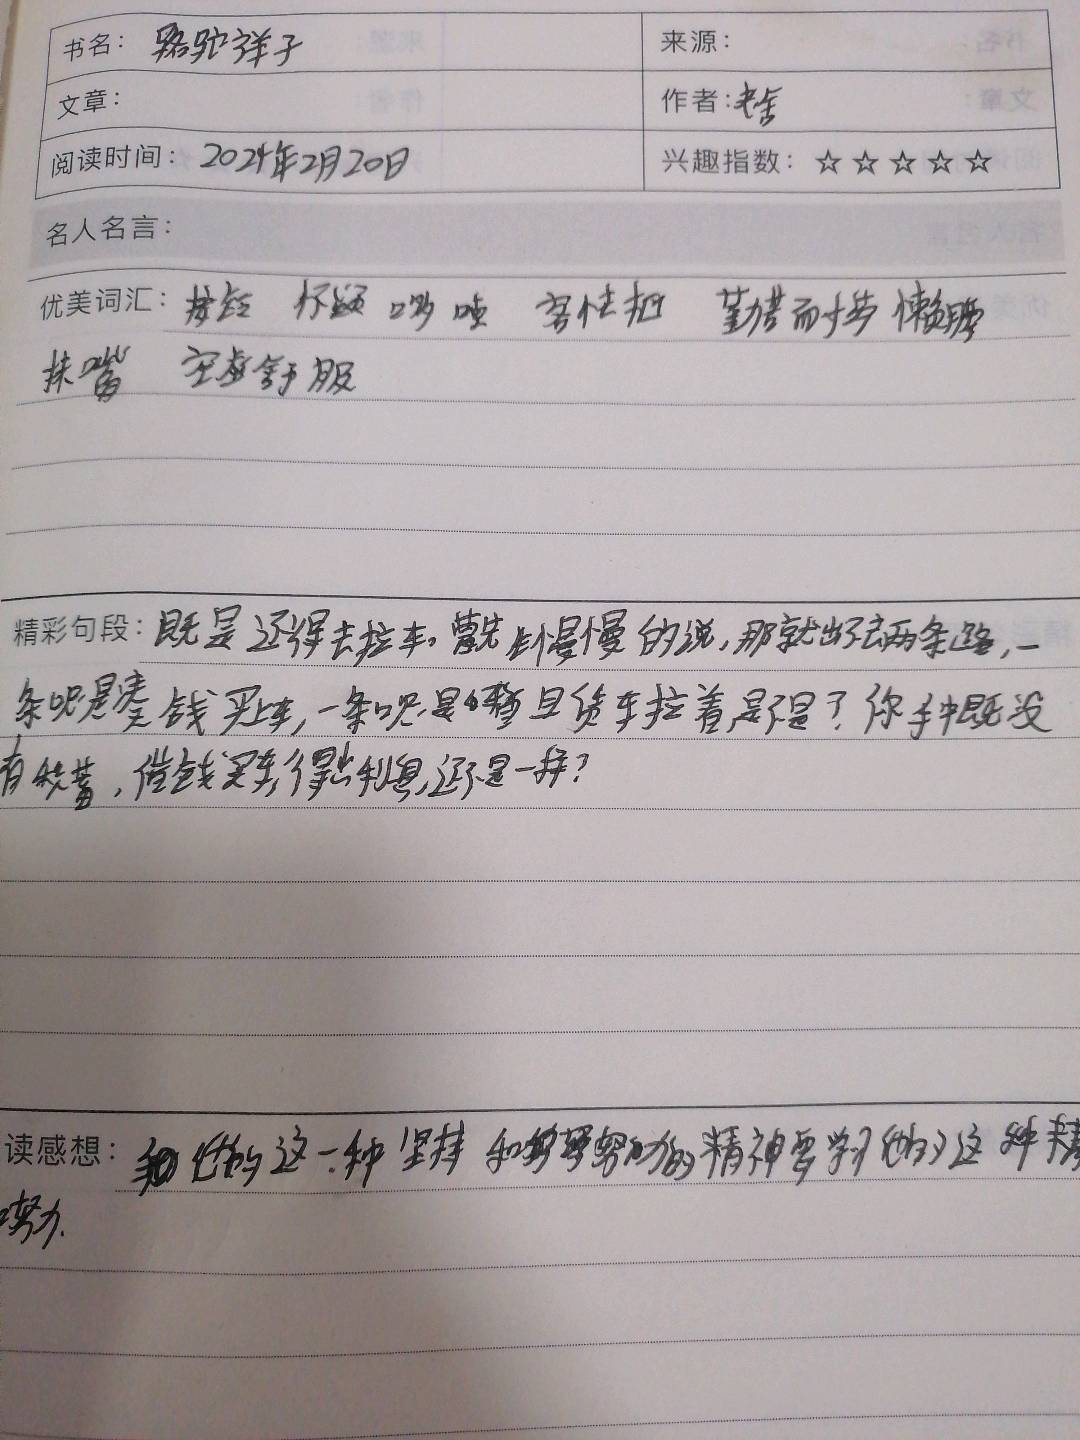 书名：骆驼祥子 来源：
文章： 作者：老舍
阅读时间：2024年2月20日 兴趣指数：☆☆☆☆☆
名人名言：
优美词汇： 哆嗦 懒腰
抹嘴 空虚 舒服
精彩句段：既是还得去拉车，曹先生慢慢的说，那就出不去两条路，一
条呢是凑钱买上车，一条呢是暂且赁车拉着是不是？你手中既没
有积蓄，借钱买车，得出利息，还不是一样？
读感想： 他的这一种坚持和努力的精神要学习他的这种精
努力.